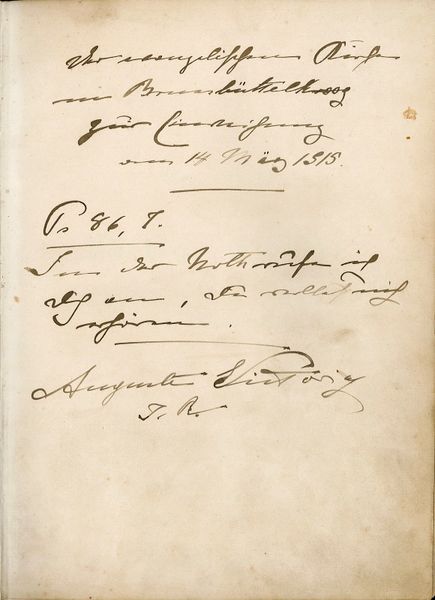 Der evangelischen Kirche
in Brunsbüttelkoog
zur Einweihung
am 14 März 1915.
Ps 86, 7.
In der Noth rufe ich
Dich an, Du wollest mich
erhören.
Auguste Victoria
I. R.